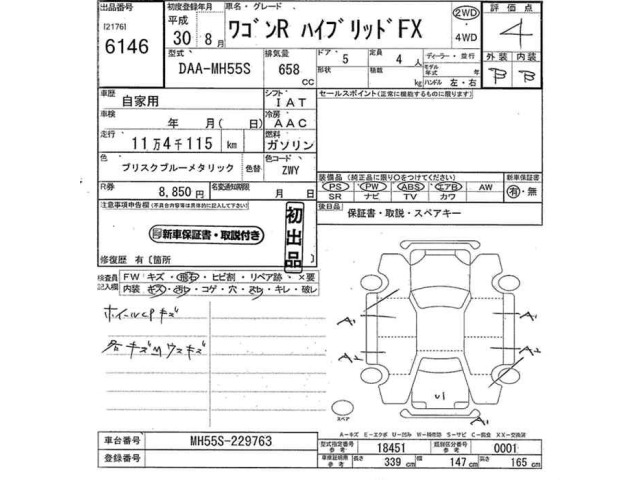 出品番号
[21761
6146
初度登録年月
平成
30年 8月
車名・グレード
ワゴンR ハイブリッドFX
2WD
・
4WD
評価点
4
型式
DAA-MH55S
排気量
658
CC
ドア・ 5
形状
定員 4 人
積載 kg
ディーラー・並行
モデル年式 年
ハンドル 左・右
外装 内装
B B
車歴
自家用
シフト
IAT
セールスポイント(正常に機能するものに限ります)
車検
年 月( 日)
冷房
AAC
走行
11万4千115 km
燃料
ガソリン
色
ブリスクブルーメタリック
色替
色コード
ZWY
装備品(純正品に限り○をつけてください)
PS・PW・ABS・エアB・AW
SR ナビ TV カワ
新車保証書
有・無
R券
8,850円
名変通知期限
月 日
後日品
保証書・取説・スペアキー
注意事項申告欄(不具合内容等は具体的に記入して下さい)
新車保証書・取説付き
初出品
修復歴 有〔箇所 〕
検査員記入欄
FW キズ・飛石・ヒビ割・リペア跡・×要
内装 キズ・汚レ・コゲ・穴・スレ・キレ・破レ
ホイールCPキズ
各キズMウスキズ
A'
A'
A'
A'
U1
A'
スペア
A-キズ E-エクボ U-凹み W-補修跡 S-サビ C-腐食 XX-交換済
車台番号
MH55S-229763
型式指定番号 参考
18451
類別区分番号 参考
0001
登録番号
車検証明県 参考
長さ 339 cm
幅 147 cm
高さ 165 cm